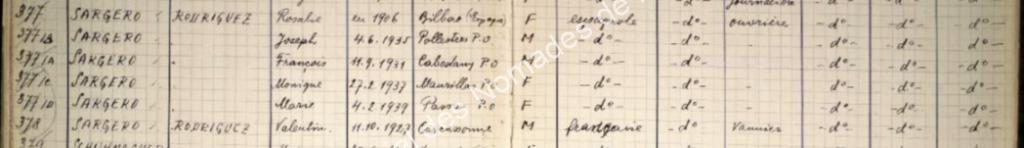 journalière
377 SARGERO RODRIGUEZ Rosalie en 1906 Bilbao (Espagne) F espagnole -d°- ouvrière -d°- -d°- -d°-
377 1B SARGERO Joseph 4.6.1935 Pollestres P.O M -d°- -d°- - -d°- -d°- -d°-
377 1A SARGERO François 11.9.1931 Cabestany P.O M -d°- -d°- - -d°- -d°- -d°-
377 1C SARGERO Monique 27.2.1937 Maureillas P.O F -d°- -d°- - -d°- -d°- -d°-
377 1D SARGERO Marie 4.2.1939 P.O F -d°- -d°- - -d°- -d°- -d°-
378 SARGERO RODRIGUEZ Valentin 11.10.1927 Carcassonne M française -d°- Vannier -d°- -d°- -d°-
379
Nomades de